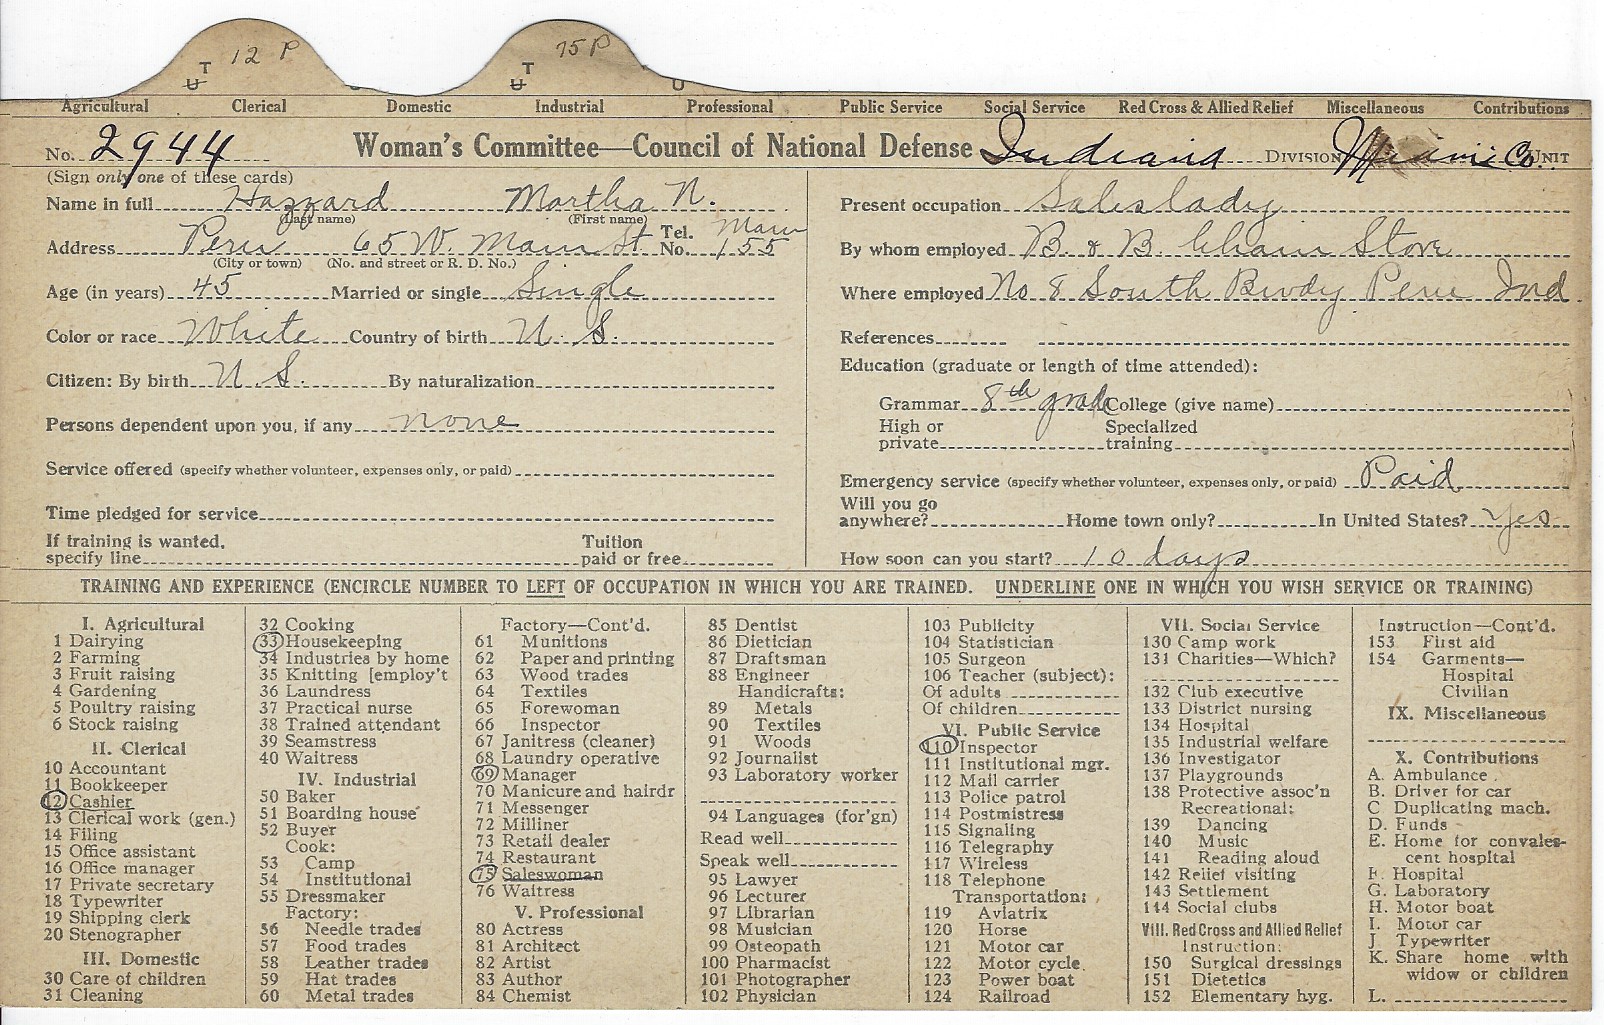 12 P 75 P
T T
U U U
Agricultural Clerical Domestic Industrial Professional Public Service Social Service Red Cross & Allied Relief Miscellaneous Contributions
No. 2944 Woman's Committee—Council of National Defense Indiana DIVISION Miami Co. UNIT
(Sign only one of these cards)
Name in full Hazzard Martha N.
(Last name) (First name)
Address Peru 65 W. Main St. Tel. No. Main 155
(City or town) (No. and street or R. D. No.)
Age (in years) 45 Married or single Single
Color or race White Country of birth U. S.
Citizen: By birth U. S. By naturalization
Persons dependent upon you, if any none
Service offered (specify whether volunteer, expenses only, or paid)
Time pledged for service
If training is wanted, Tuition
specify line paid or free
Present occupation Saleslady
By whom employed B. & B. Chain Store
Where employed No 8 South Brwdy Peru Ind
References
Education (graduate or length of time attended):
Grammar 8th grade College (give name)
High or Specialized
private training
Emergency service (specify whether volunteer, expenses only, or paid) Paid
Will you go
anywhere? Home town only? In United States? Yes
How soon can you start? 10 days
TRAINING AND EXPERIENCE (ENCIRCLE NUMBER TO LEFT OF OCCUPATION IN WHICH YOU ARE TRAINED. UNDERLINE ONE IN WHICH YOU WISH SERVICE OR TRAINING)
I. Agricultural
1 Dairying
2 Farming
3 Fruit raising
4 Gardening
5 Poultry raising
6 Stock raising
II. Clerical
10 Accountant
11 Bookkeeper
12 Cashier
13 Clerical work (gen.)
14 Filing
15 Office assistant
16 Office manager
17 Private secretary
18 Typewriter
19 Shipping clerk
20 Stenographer
III. Domestic
30 Care of children
31 Cleaning
32 Cooking
33 Housekeeping
34 Industries by home
35 Knitting [employ't
36 Laundress
37 Practical nurse
38 Trained attendant
39 Seamstress
40 Waitress
IV. Industrial
50 Baker
51 Boarding house
52 Buyer
Cook:
53 Camp
54 Institutional
55 Dressmaker
Factory:
56 Needle trades
57 Food trades
58 Leather trades
59 Hat trades
60 Metal trades
Factory—Cont'd.
61 Munitions
62 Paper and printing
63 Wood trades
64 Textiles
65 Forewoman
66 Inspector
67 Janitress (cleaner)
68 Laundry operative
69 Manager
70 Manicure and hairdr
71 Messenger
72 Milliner
73 Retail dealer
74 Restaurant
75 Saleswoman
76 Waitress
V. Professional
80 Actress
81 Architect
82 Artist
83 Author
84 Chemist
85 Dentist
86 Dietician
87 Draftsman
88 Engineer
Handicrafts:
89 Metals
90 Textiles
91 Woods
92 Journalist
93 Laboratory worker
94 Languages (for'gn)
Read well
Speak well
95 Lawyer
96 Lecturer
97 Librarian
98 Musician
99 Osteopath
100 Pharmacist
101 Photographer
102 Physician
103 Publicity
104 Statistician
105 Surgeon
106 Teacher (subject):
Of adults
Of children
VI. Public Service
110 Inspector
111 Institutional mgr.
112 Mail carrier
113 Police patrol
114 Postmistress
115 Signaling
116 Telegraphy
117 Wireless
118 Telephone
Transportation:
119 Aviatrix
120 Horse
121 Motor car
122 Motor cycle
123 Power boat
124 Railroad
VII. Social Service
130 Camp work
131 Charities—Which?
132 Club executive
133 District nursing
134 Hospital
135 Industrial welfare
136 Investigator
137 Playgrounds
138 Protective assoc'n
Recreational:
139 Dancing
140 Music
141 Reading aloud
142 Relief visiting
143 Settlement
144 Social clubs
VIII. Red Cross and Allied Relief
Instruction:
150 Surgical dressings
151 Dietetics
152 Elementary hyg.
Instruction—Cont'd.
153 First aid
154 Garments—
Hospital
Civilian
IX. Miscellaneous
X. Contributions
A. Ambulance
B. Driver for car
C Duplicating mach.
D. Funds
E. Home for convales-
cent hospital
F. Hospital
G. Laboratory
H. Motor boat
I. Motor car
J Typewriter
K. Share home with
widow or children
L.